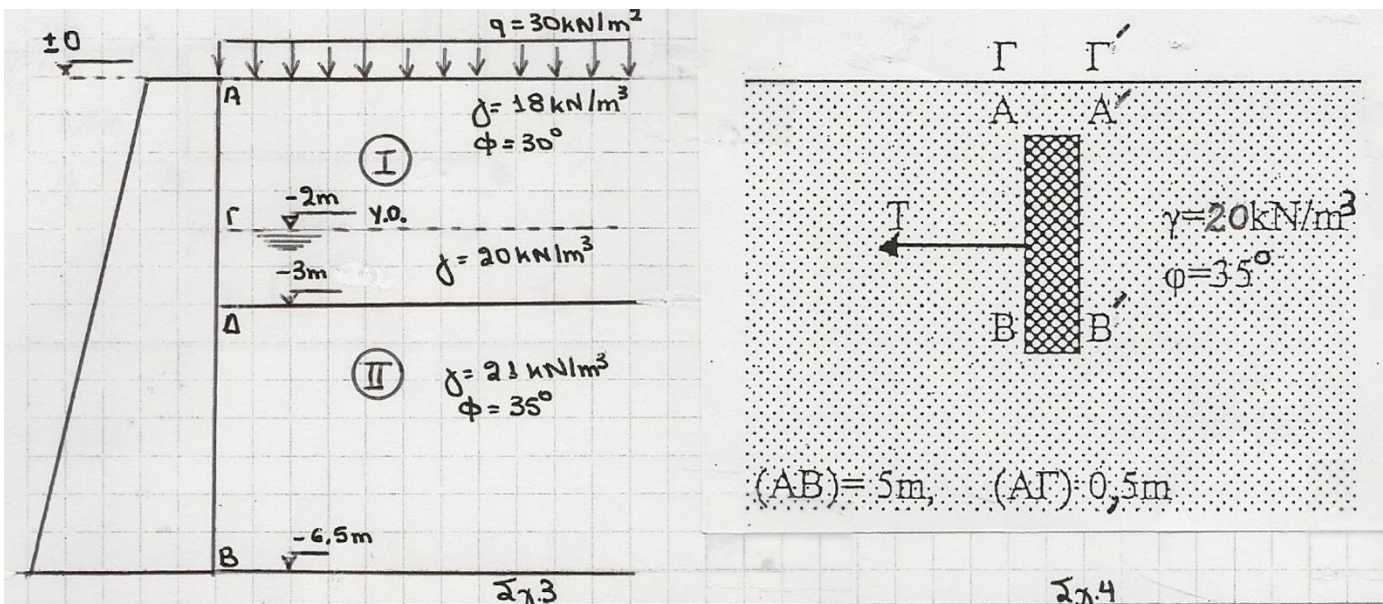 q=30kN/m²
±0
A
γ=18kN/m³
φ=30°
I
-2m
Υ.Ο.
Γ
γ=20kN/m³
-3m
Δ
II
γ=21kN/m³
φ=35°
-6,5m
B
Σχ.3
Γ Γ′
A A′
T
γ=20kN/m³
φ=35°
B B′
(AB)= 5m, (AΓ) 0,5m
Σχ.4